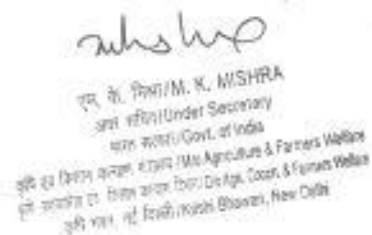 एम. के. मिश्रा/M. K. MISHRA
अवर सचिव/Under Secretary
भारत सरकार/Govt. of India
कृषि एवं किसान कल्याण मंत्रालय/M/o Agriculture & Farmers Welfare
कृषि किसान कल्याण विभाग/D/o Agri. Coopn. & Farmers Welfare
कृषि भवन, नई दिल्ली/Krishi Bhawan, New Delhi